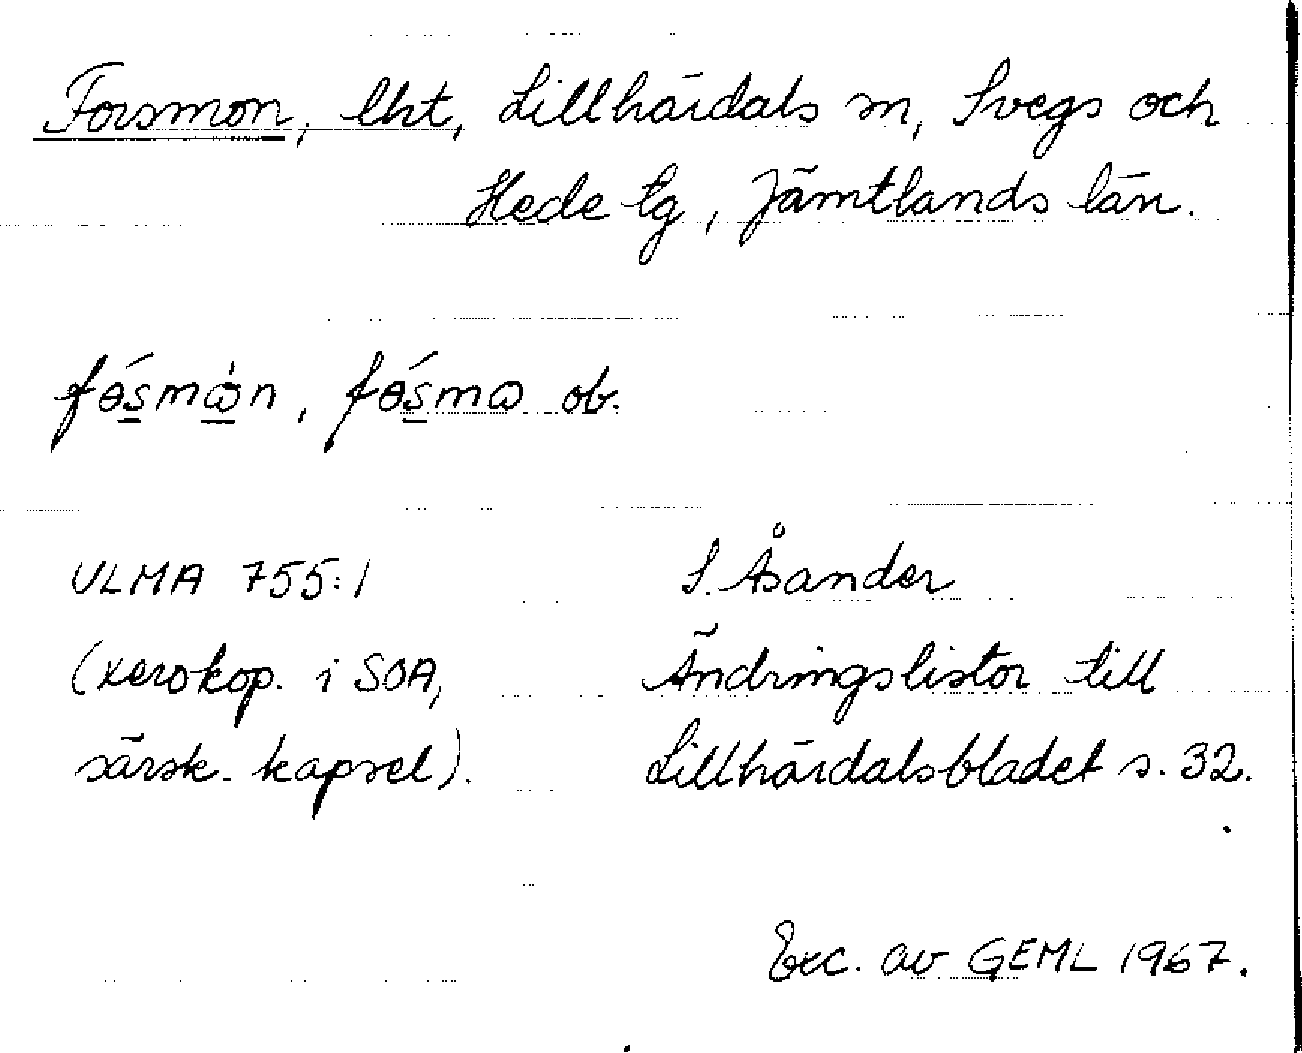 Forsmon, lht, Lillhärdals sn, Svegs och
Hede tg, Jämtlands län.
fɵ́s̲mὼ̲n, fɵ́s̲mω ob.
ULMA 755:1
(xerokop. i SOA,
särsk. kapsel).
S. Åsander
Ändringslistor till
Lillhärdalsbladet s. 32.
Exc. av GEML 1967.